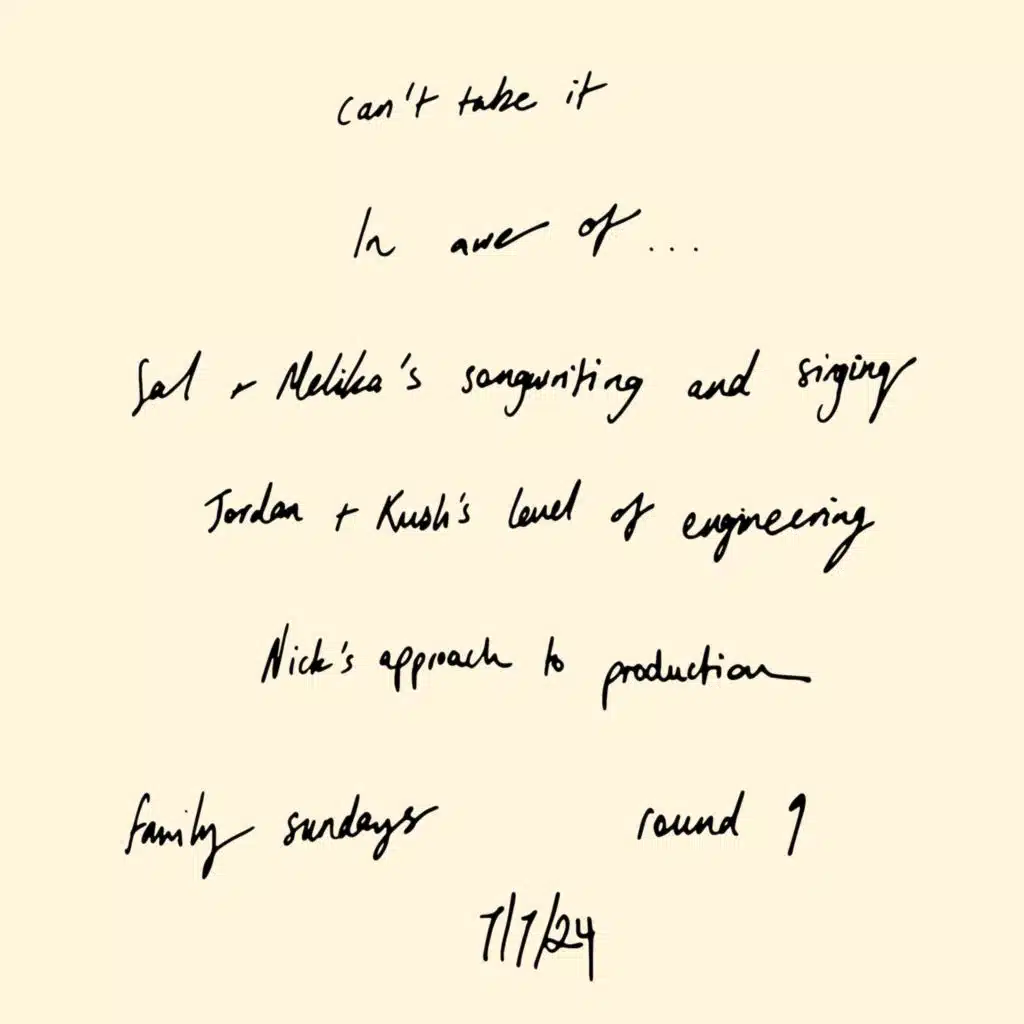 can't take it
In awe of...
Sal + Melika's songwriting and singing
Jordan + Kush's level of engineering
Nick's approach to production
family sundays round 9
7/7/24